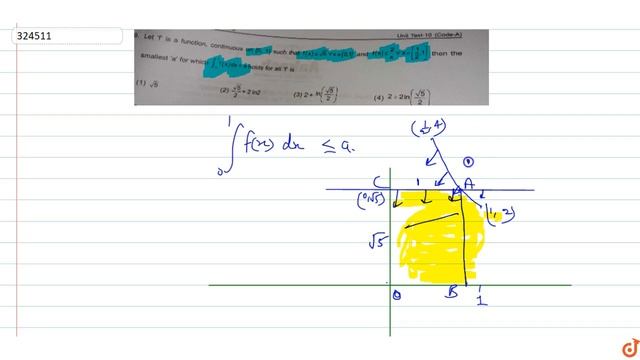 324511
Unit Test-10 (Code-A)
Let 'f' is a function, continuous on [0, 1] such that f(x) ≤ √5 ∀ x ∈ [0, 1] and f(x) ≤ 2/x ∀ x ∈ [1/2, 1] then the
smallest 'a' for which ∫ f(x)dx ≤ a holds for all 'f' is
(1) √5
(2) √5/2 + 2 ln2
(3) 2 + ln(√5/2)
(4) 2 + 2 ln(√5/2)
∫₀¹ f(x) dx ≤ a.
(1/2, 4)
C
1
A
(0,√5)
(1, 2)
√5
0
B
1